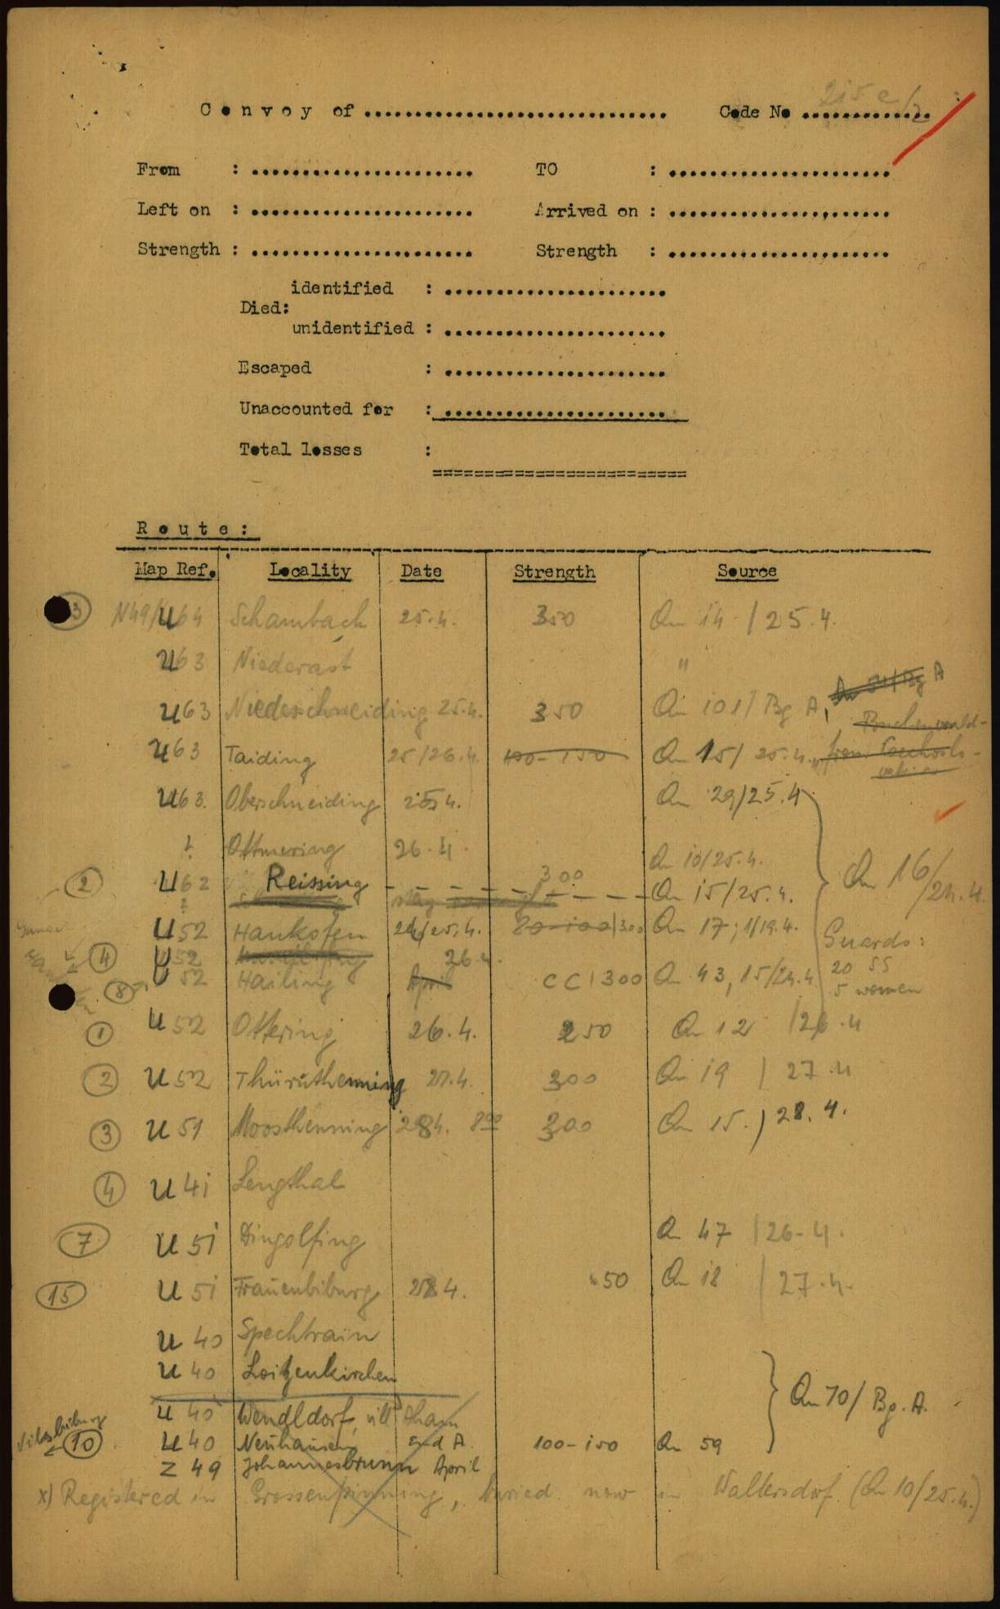 215 c/2
Convoy of .............................. Code No .............
From : ...................... TO : ......................
Left on : ...................... Arrived on : ......................
Strength : ...................... Strength : ......................
identified : ......................
Died:
unidentified : ......................
Escaped : ......................
Unaccounted for : ......................
Total losses :
=========================
Route:
Map Ref. Locality Date Strength Source
3 N49/U64 Schambach 25.4. 350 Qu 14 / 25.4.
U63 Niederast "
U63 Niederschneiding 25.4. 350 Qu 101/Bg A,
U63 Taiding 25/26.4. 100-150 Qu 15/ 25.4.
U63. Oberschneiding 25.4. Qu 29/25.4
? Ottmering 26.4. Qu 10/25.4.
2 U62 Reissing 300 Qu 15/25.4. Qu 16/24.4.
U52 Hankofen 24/25.4. 80-100/300 Qu 17; 1/19.4. Guards:
4 U52 26.4. 20 SS
8 U52 Hailing April CC 1300 Qu 43, 15/24.4 5 women
1 U52 Ottering 26.4. 250 Qu 12 /26.4
2 U52 Thürnthenning 27.4. 300 Qu 19 / 27.4
3 U51 Moosthenning 28.4. 8 00 300 Qu 15. / 28.4.
4 U41 Lengthal
7 U51 Dingolfing Qu 47 / 26.4.
15 U51 Frauenbiburg 28.4. 50 Qu 18 / 27.4.
U40 Spechtrain
U40 Loitzenkirchen Qu 70/Bg. A.
U40 Wendldorf, vill Aham
Vilsbiburg 10 U40 Neuhausen End A. 100-150 Qu 59
Z 49 Johannesbrunn April
x) Registered in Grossenpinning, buried now in Waltersdorf (Qu 10/25.4.)